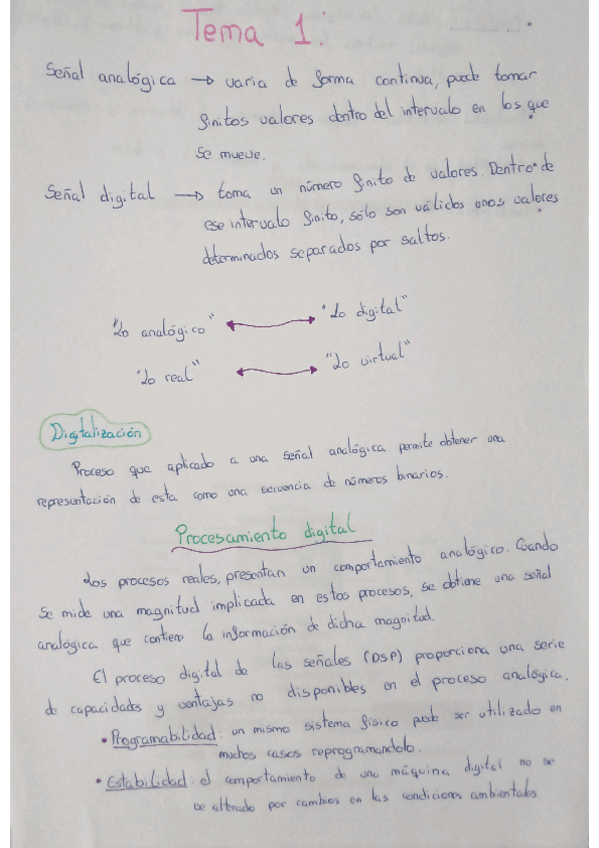 Tema 1.
Señal analógica → varia de forma continua, puede tomar
finitos valores dentro del intervalo en los que
se mueve.
Señal digital → toma un número finito de valores. Dentro de
ese intervalo finito, sólo son válidos unos valores
determinados separados por saltos.
"Lo analógico" ↔ "Lo digital"
"Lo real" ↔ "Lo virtual"
Digitalización
Proceso que aplicado a una señal analógica permite obtener una
representación de esta como una secuencia de números binarios.
Procesamiento digital
Los procesos reales, presentan un comportamiento analógico. Cuando
se mide una magnitud implicada en estos procesos, se obtiene una señal
analógica que contiene la información de dicha magnitud.
El proceso digital de las señales (DSP) proporciona una serie
de capacidades y ventajas no disponibles en el proceso analógica.
• Programabilidad: un mismo sistema físico puede ser utilizado en
muchos casos reprogramandolo.
• Estabilidad: el comportamiento de una máquina digital no se
ve altrado por cambios en las condiciones ambientales